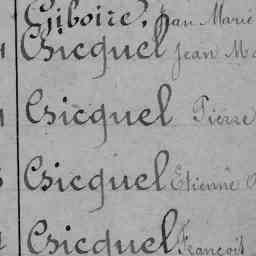 Giboire, Jean Marie
Gicquel Jean M
Gicquel Pierre
Gicquel Etienne
Gicquel François